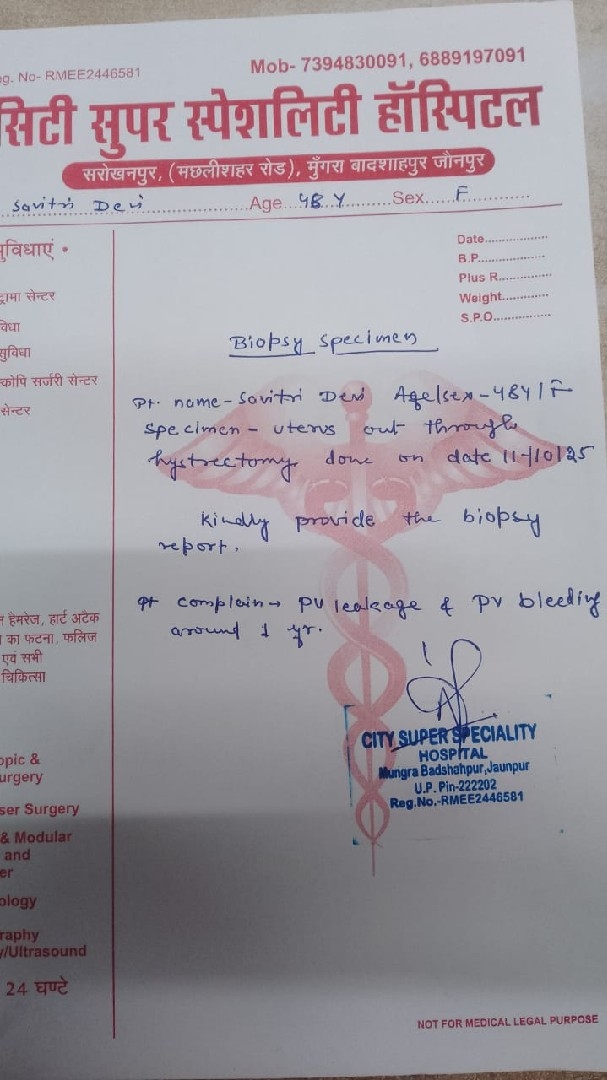 eg. No- RMEE2446581
Mob- 7394830091, 6889197091
सिटी सुपर स्पेशलिटी हॉस्पिटल
सरोखनपुर, (मछलीशहर रोड), मुँगरा बादशाहपुर जौनपुर
Savitri Devi Age 48 Y Sex F
सुविधाएं •
Date
B.P.
Plus R
Weight
S.P.O.
ट्रामा सेन्टर
विधा
सुविधा
स्कोपि सर्जरी सेन्टर
सेन्टर
Biopsy specimen
Pt. name - Savitri Devi Age/sex - 48Y/F
specimen - uterus out through
hystrectomy done on date 11-10/25
Kindly provide the biopsy
report.
Pt complain → PV leakage & PV bleeding
around 1 yr.
न हेमरेज, हार्ट अटैक
का फटना, फलिज
एवं सभी
चिकित्सा
opic &
urgery
ser Surgery
& Modular
and
er
ology
raphy
y/Ultrasound
24 घण्टे
CITY SUPER SPECIALITY
HOSPITAL
Mungra Badshahpur,Jaunpur
U.P. Pin-222202
Reg.No.-RMEE2446581
NOT FOR MEDICAL LEGAL PURPOSE